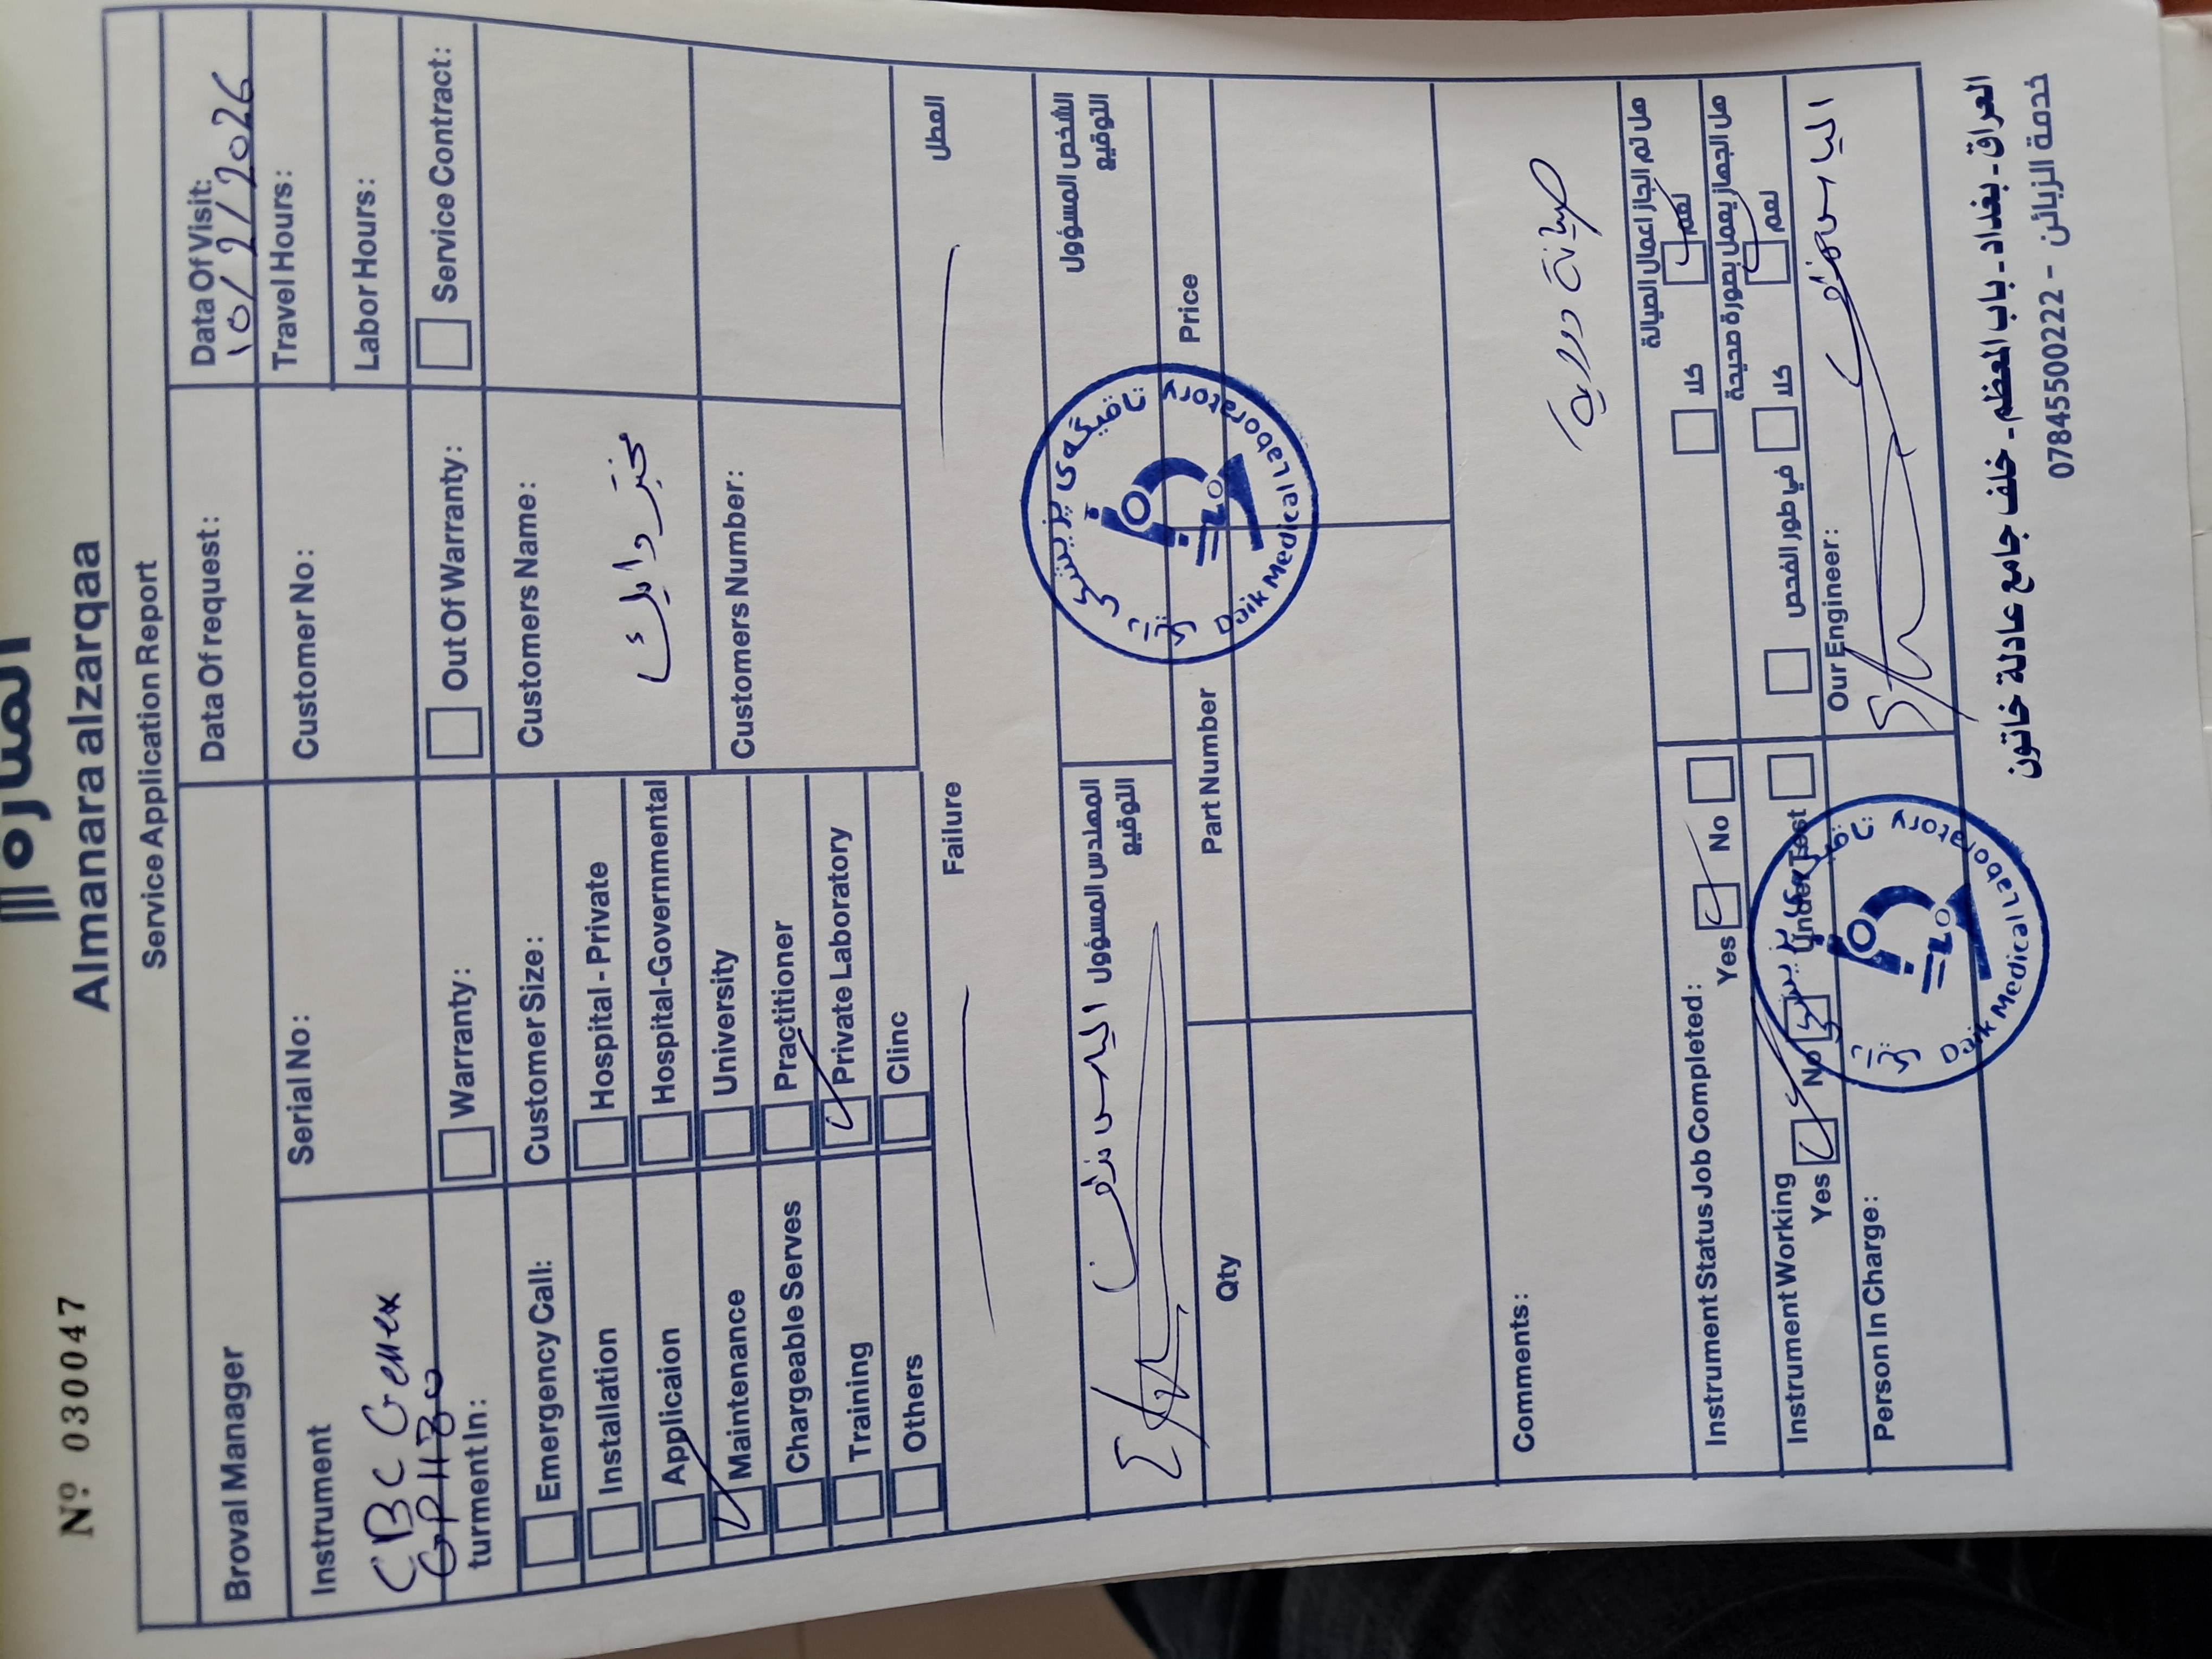 المنارة
Almanara alzarqaa
Nº 030047
Service Application Report
Broval Manager
Data Of request:
Data Of Visit:
10/2/2026
Instrument
CBC Genex
Serial No:
Customer No:
Travel Hours:
Labor Hours:
turment In:
Warranty:
Out Of Warranty:
Service Contract:
Emergency Call:
Installation
Applicaion
Maintenance
Chargeable Serves
Training
Others
Customer Size:
Hospital - Private
Hospital-Governmental
University
Practitioner
Private Laboratory
Clinc
Customers Name:
مختبر دايك
Customers Number:
Failure
العطل
المهندس المسؤول
التوقيع
الشخص المسؤول
التوقيع
Daik Medical Laboratory
Qty
Part Number
Price
Comments:
صيانة دورية
Instrument Status Job Completed:
Yes
No
هل تم انجاز اعمال الصيانة
كلا
نعم
Instrument Working
Yes
No
Under Test
هل الجهاز يعمل بصورة صحيحة
في طور الفحص
كلا
نعم
Person In Charge:
Our Engineer:
Daik Medical Laboratory
العراق - بغداد - باب المعظم - خلف جامع عادلة خاتون
خدمة الزبائن - 07845500222